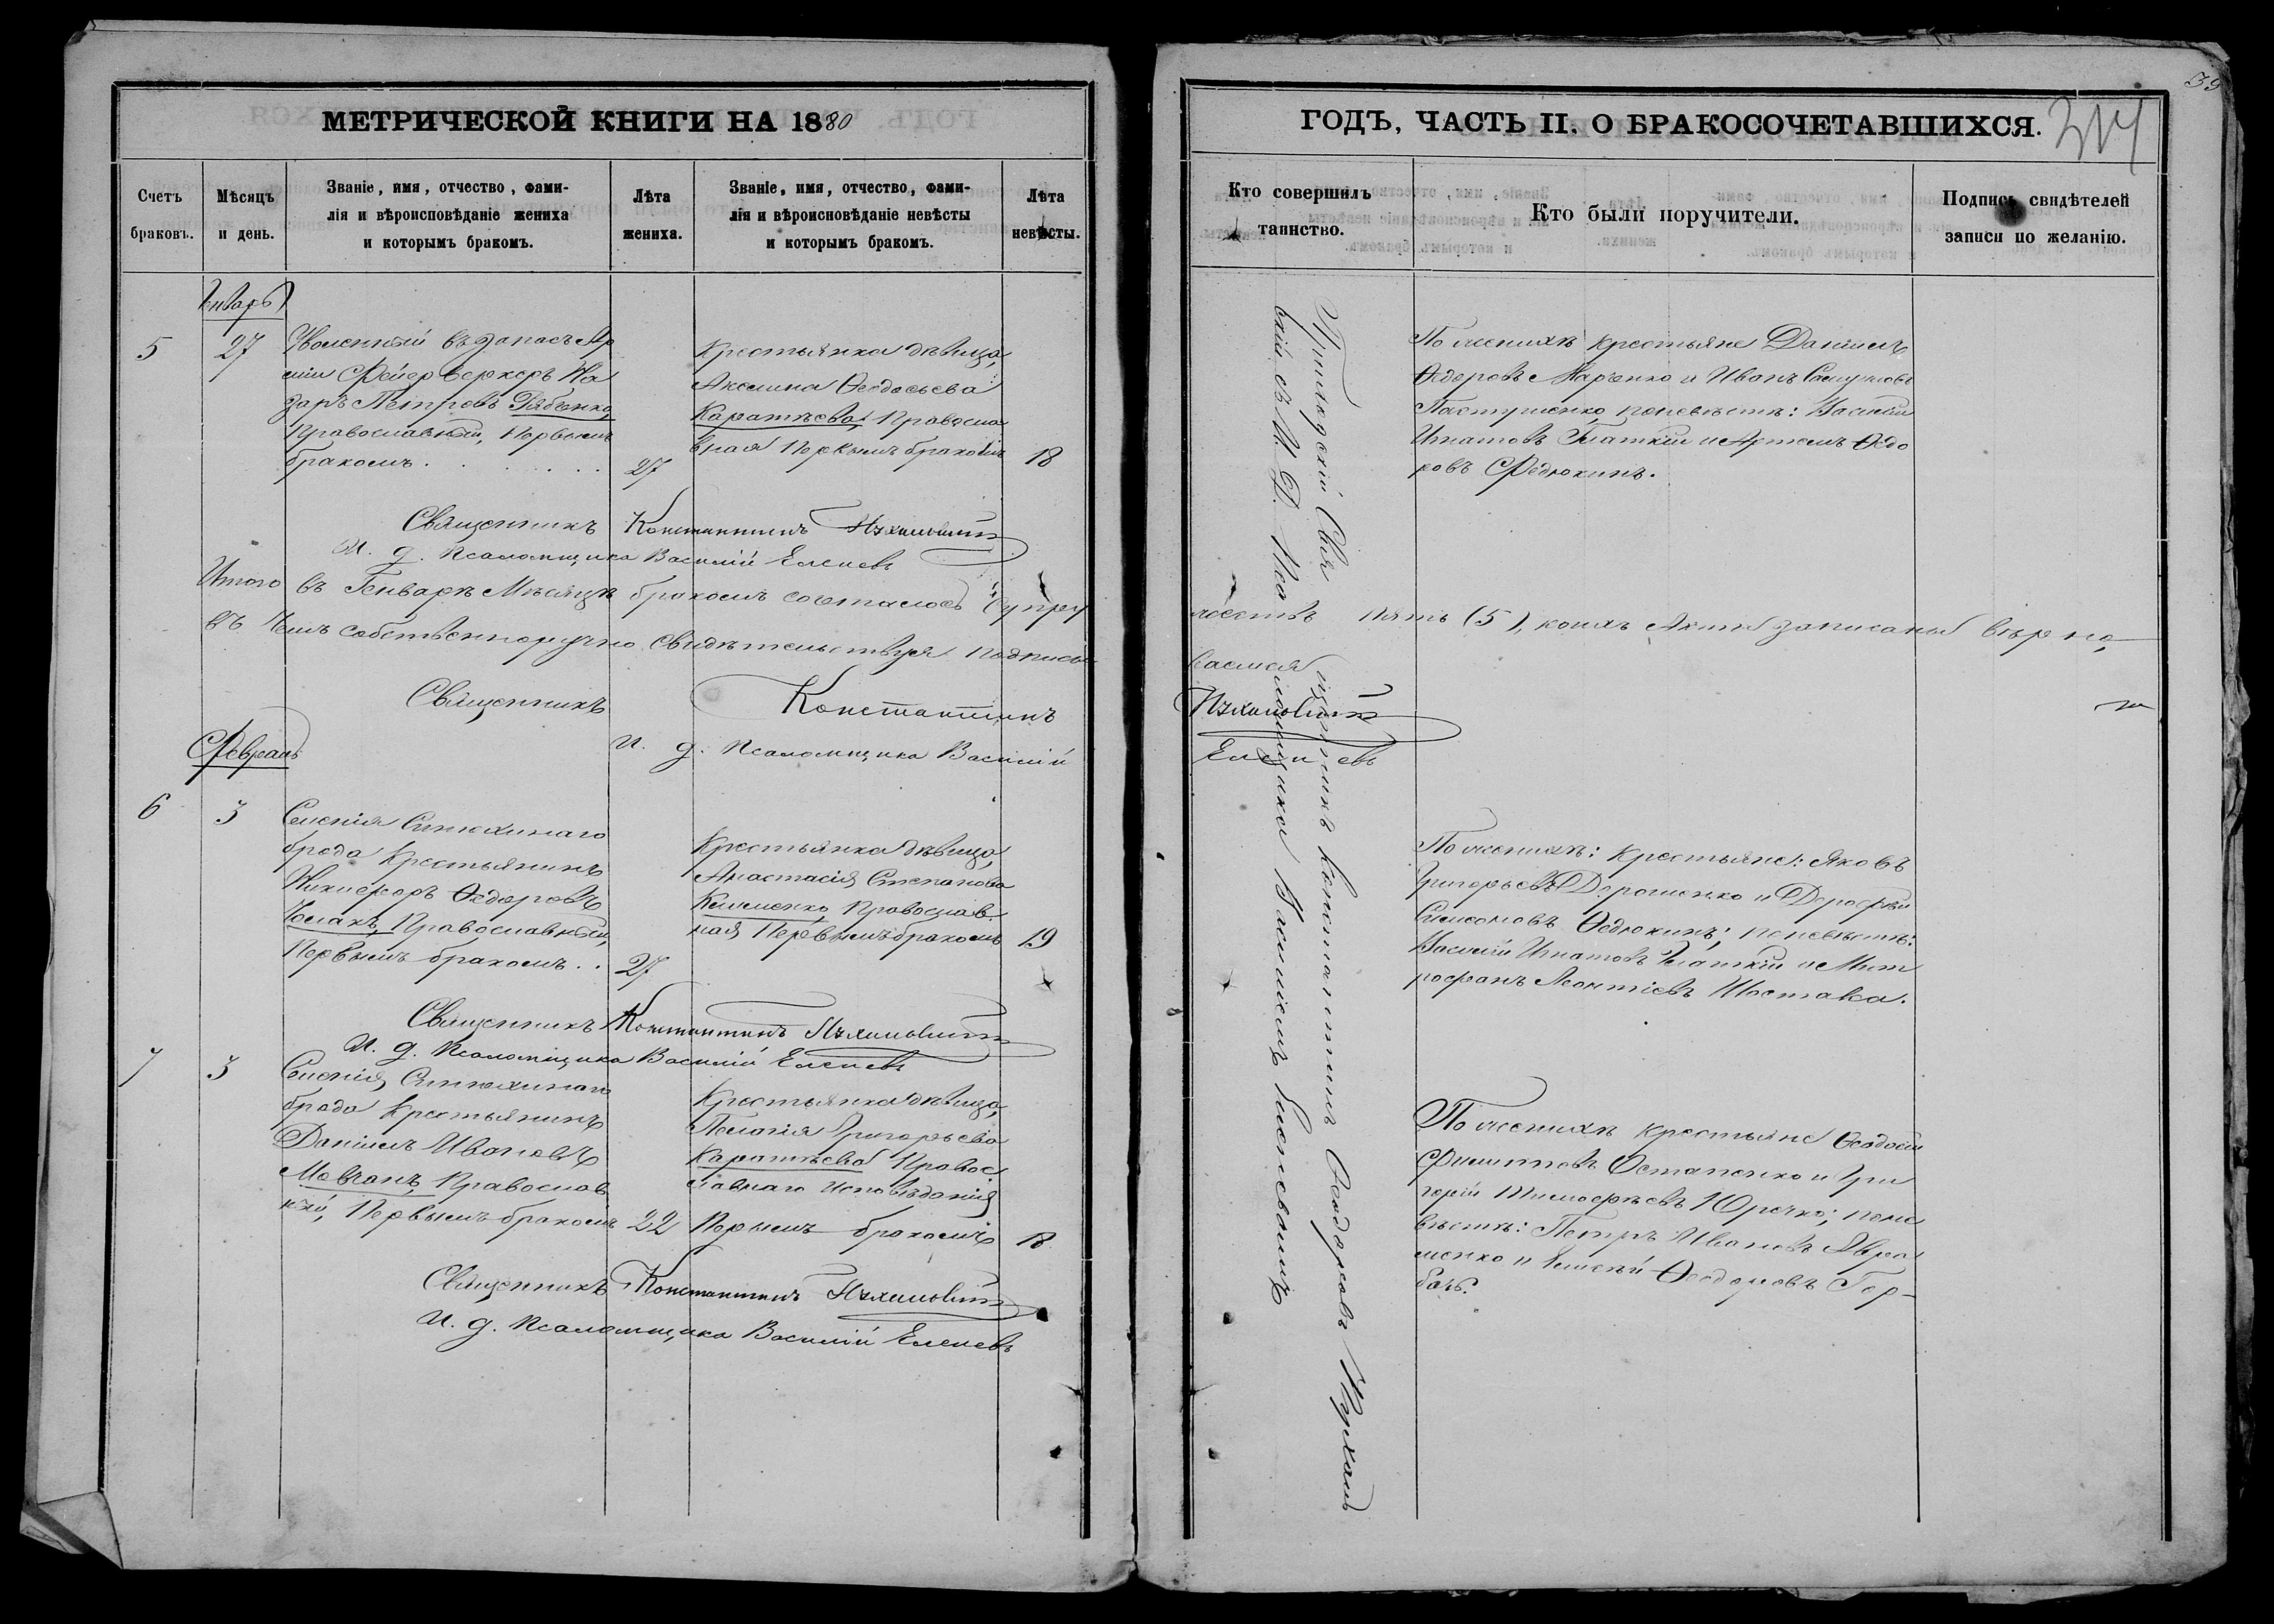 39
МЕТРИЧЕСКОЙ КНИГИ НА 1880
ГОДЪ, ЧАСТЬ II. О БРАКОСОЧЕТАВШИХСЯ.
314
Счетъ браковъ.
Мѣсяцъ и день.
Званіе, имя, отчество, фами-
лія и вѣроисповѣданіе жениха
и которымъ бракомъ.
Лѣта
жениха.
Званіе, имя, отчество, фами-
лія и вѣроисповѣданіе невѣсты
и которымъ бракомъ.
Лѣта
невѣсты.
Кто совершилъ
таинство.
Кто были поручители.
Подпись свидѣтелей
записи по желанію.
Январь
5
27
Уволенный въ запасъ Ар
міи Фейерверкеръ На
заръ Петровъ Рябченко,
Православный, Первымъ
бракомъ.
27
Крестьянка дѣвица,
Акелина Ѳеодосьева
Каратѣева Правосла
вная Первымъ бракомъ
18
По женихѣ крестьяне Даніилъ
Ѳедоровъ Марченко и Иванъ
Пастушенко, поневѣстѣ: Василій
Игнатовъ Гладкій и Артемъ Ѳедо
ровъ Федюкинъ.
Священникъ Константинъ
И. д. Псаломщика Василій Еленевъ
Итого въ Генварѣ Мѣсяцѣ бракомъ сочеталось Супру
жествъ пять (5), коихъ Акты записаны вѣрно,
въ чемъ собственноручно свидѣтельствуя подписы
ваемся
Священникъ Константинъ
И. д. Псаломщика Василій Еленевъ
Февраль
6
3
Селенія Синюхинаго
брода Крестьянинъ
Никифоръ Ѳедоровъ
Православный,
Первымъ бракомъ..
27
Крестьянка дѣвица,
Анастасія Степанова
Клименко, Православ
ная, Первымъ бракомъ
19
По женихѣ: крестьяне: Яковъ
Григорьевъ Дорошенко и Дорофей
Симеоновъ Ѳедюкинъ; поневѣстѣ:
Василій Игнатовъ Гладкій и Мит
рофанъ Леонтіевъ Шостака.
Священникъ Константинъ
И. д. Псаломщика Василій Еленевъ
7
3
Селенія Синюхинаго
брода Крестьянинъ
Даніилъ Ивановъ
Мовчанъ, Православ
ный, Первымъ бракомъ
22
Крестьянка дѣвица,
Пелагія Григорьева
Каратѣева Правос
лавнаго исповѣданія
Первымъ бракомъ
18
По женихѣ крестьяне Ѳеодосій
Филипповъ Остапенко и Гри
горій Тимофѣевъ Юречко; поне
вѣстѣ: Петръ Ивановъ Явра
менко и Ѳеодоровъ Гор-
бачъ.
Священникъ Константинъ
И. д. Псаломщика Василій Еленевъ
Приходскій Священникъ Константинъ Ѳеодоровъ
съ И. Д. Псаломщика Василіемъ Еленевымъ